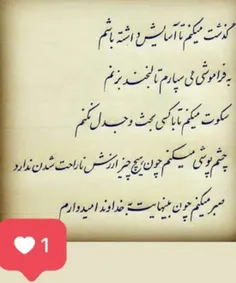 گذشت میکنم تا آسایش داشته باشم
به فراموشی می سپارم تا لبخند بزنم
سکوت میکنم تا با کسی بحث و جدل نکنم
چشم پوشی میکنم چون هیچ چیز ارزش ناراحت شدن ندارد
صبر میکنم چون بینهایت به خداوند امیدوارم
1